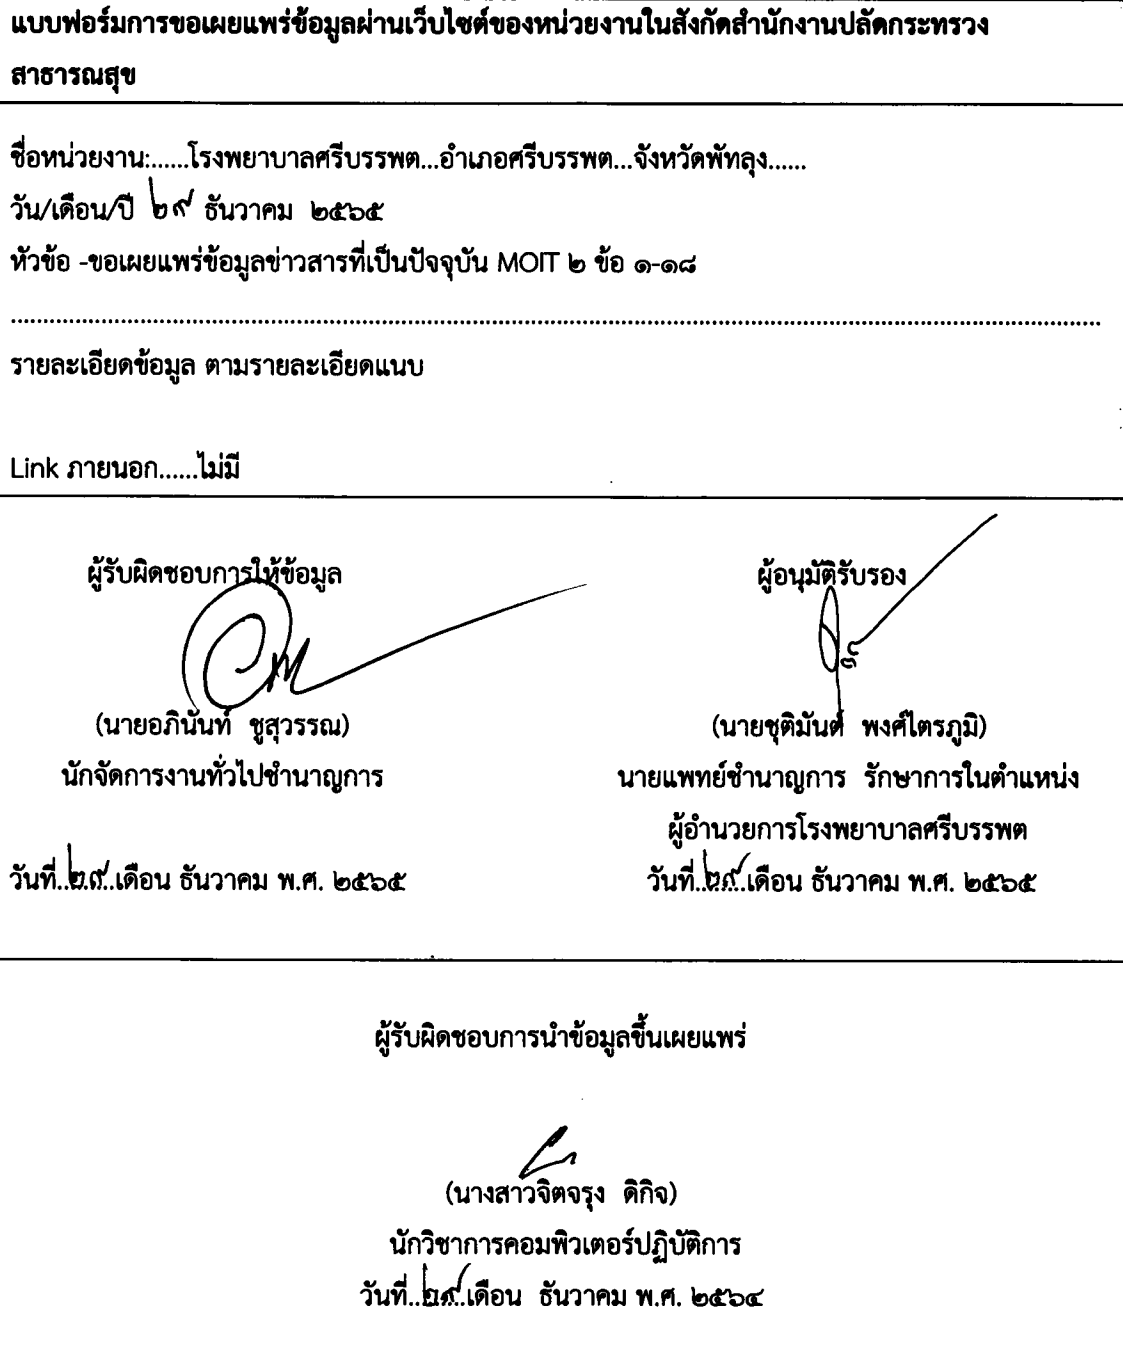 แบบฟอร์มการขอเผยแพร่ข้อมูลผ่านเว็บไซต์ของหน่วยงานในสังกัดสำนักงานปลัดกระทรวง
สาธารณสุข
ชื่อหน่วยงาน:......โรงพยาบาลศรีบรรพต...อำเภอศรีบรรพต...จังหวัดพัทลุง......
วัน/เดือน/ปี ๒๙ ธันวาคม ๒๕๖๕
หัวข้อ -ขอเผยแพร่ข้อมูลข่าวสารที่เป็นปัจจุบัน MOIT ๒ ข้อ ๑-๑๘
รายละเอียดข้อมูล ตามรายละเอียดแนบ
Link ภายนอก......ไม่มี
ผู้รับผิดชอบการให้ข้อมูล ผู้อนุมัติรับรอง
(นายอภินันท์ ชูสุวรรณ) (นายชุติมันต์ พงศ์ไตรภูมิ)
นักจัดการงานทั่วไปชำนาญการ นายแพทย์ชำนาญการ รักษาการในตำแหน่ง
ผู้อำนวยการโรงพยาบาลศรีบรรพต
วันที่..๒๙..เดือน ธันวาคม พ.ศ. ๒๕๖๕ วันที่..๒๙..เดือน ธันวาคม พ.ศ. ๒๕๖๕
ผู้รับผิดชอบการนำข้อมูลขึ้นเผยแพร่
(นางสาวจิตจรุง ดิกิจ)
นักวิชาการคอมพิวเตอร์ปฏิบัติการ
วันที่..๒๙..เดือน ธันวาคม พ.ศ. ๒๕๖๔